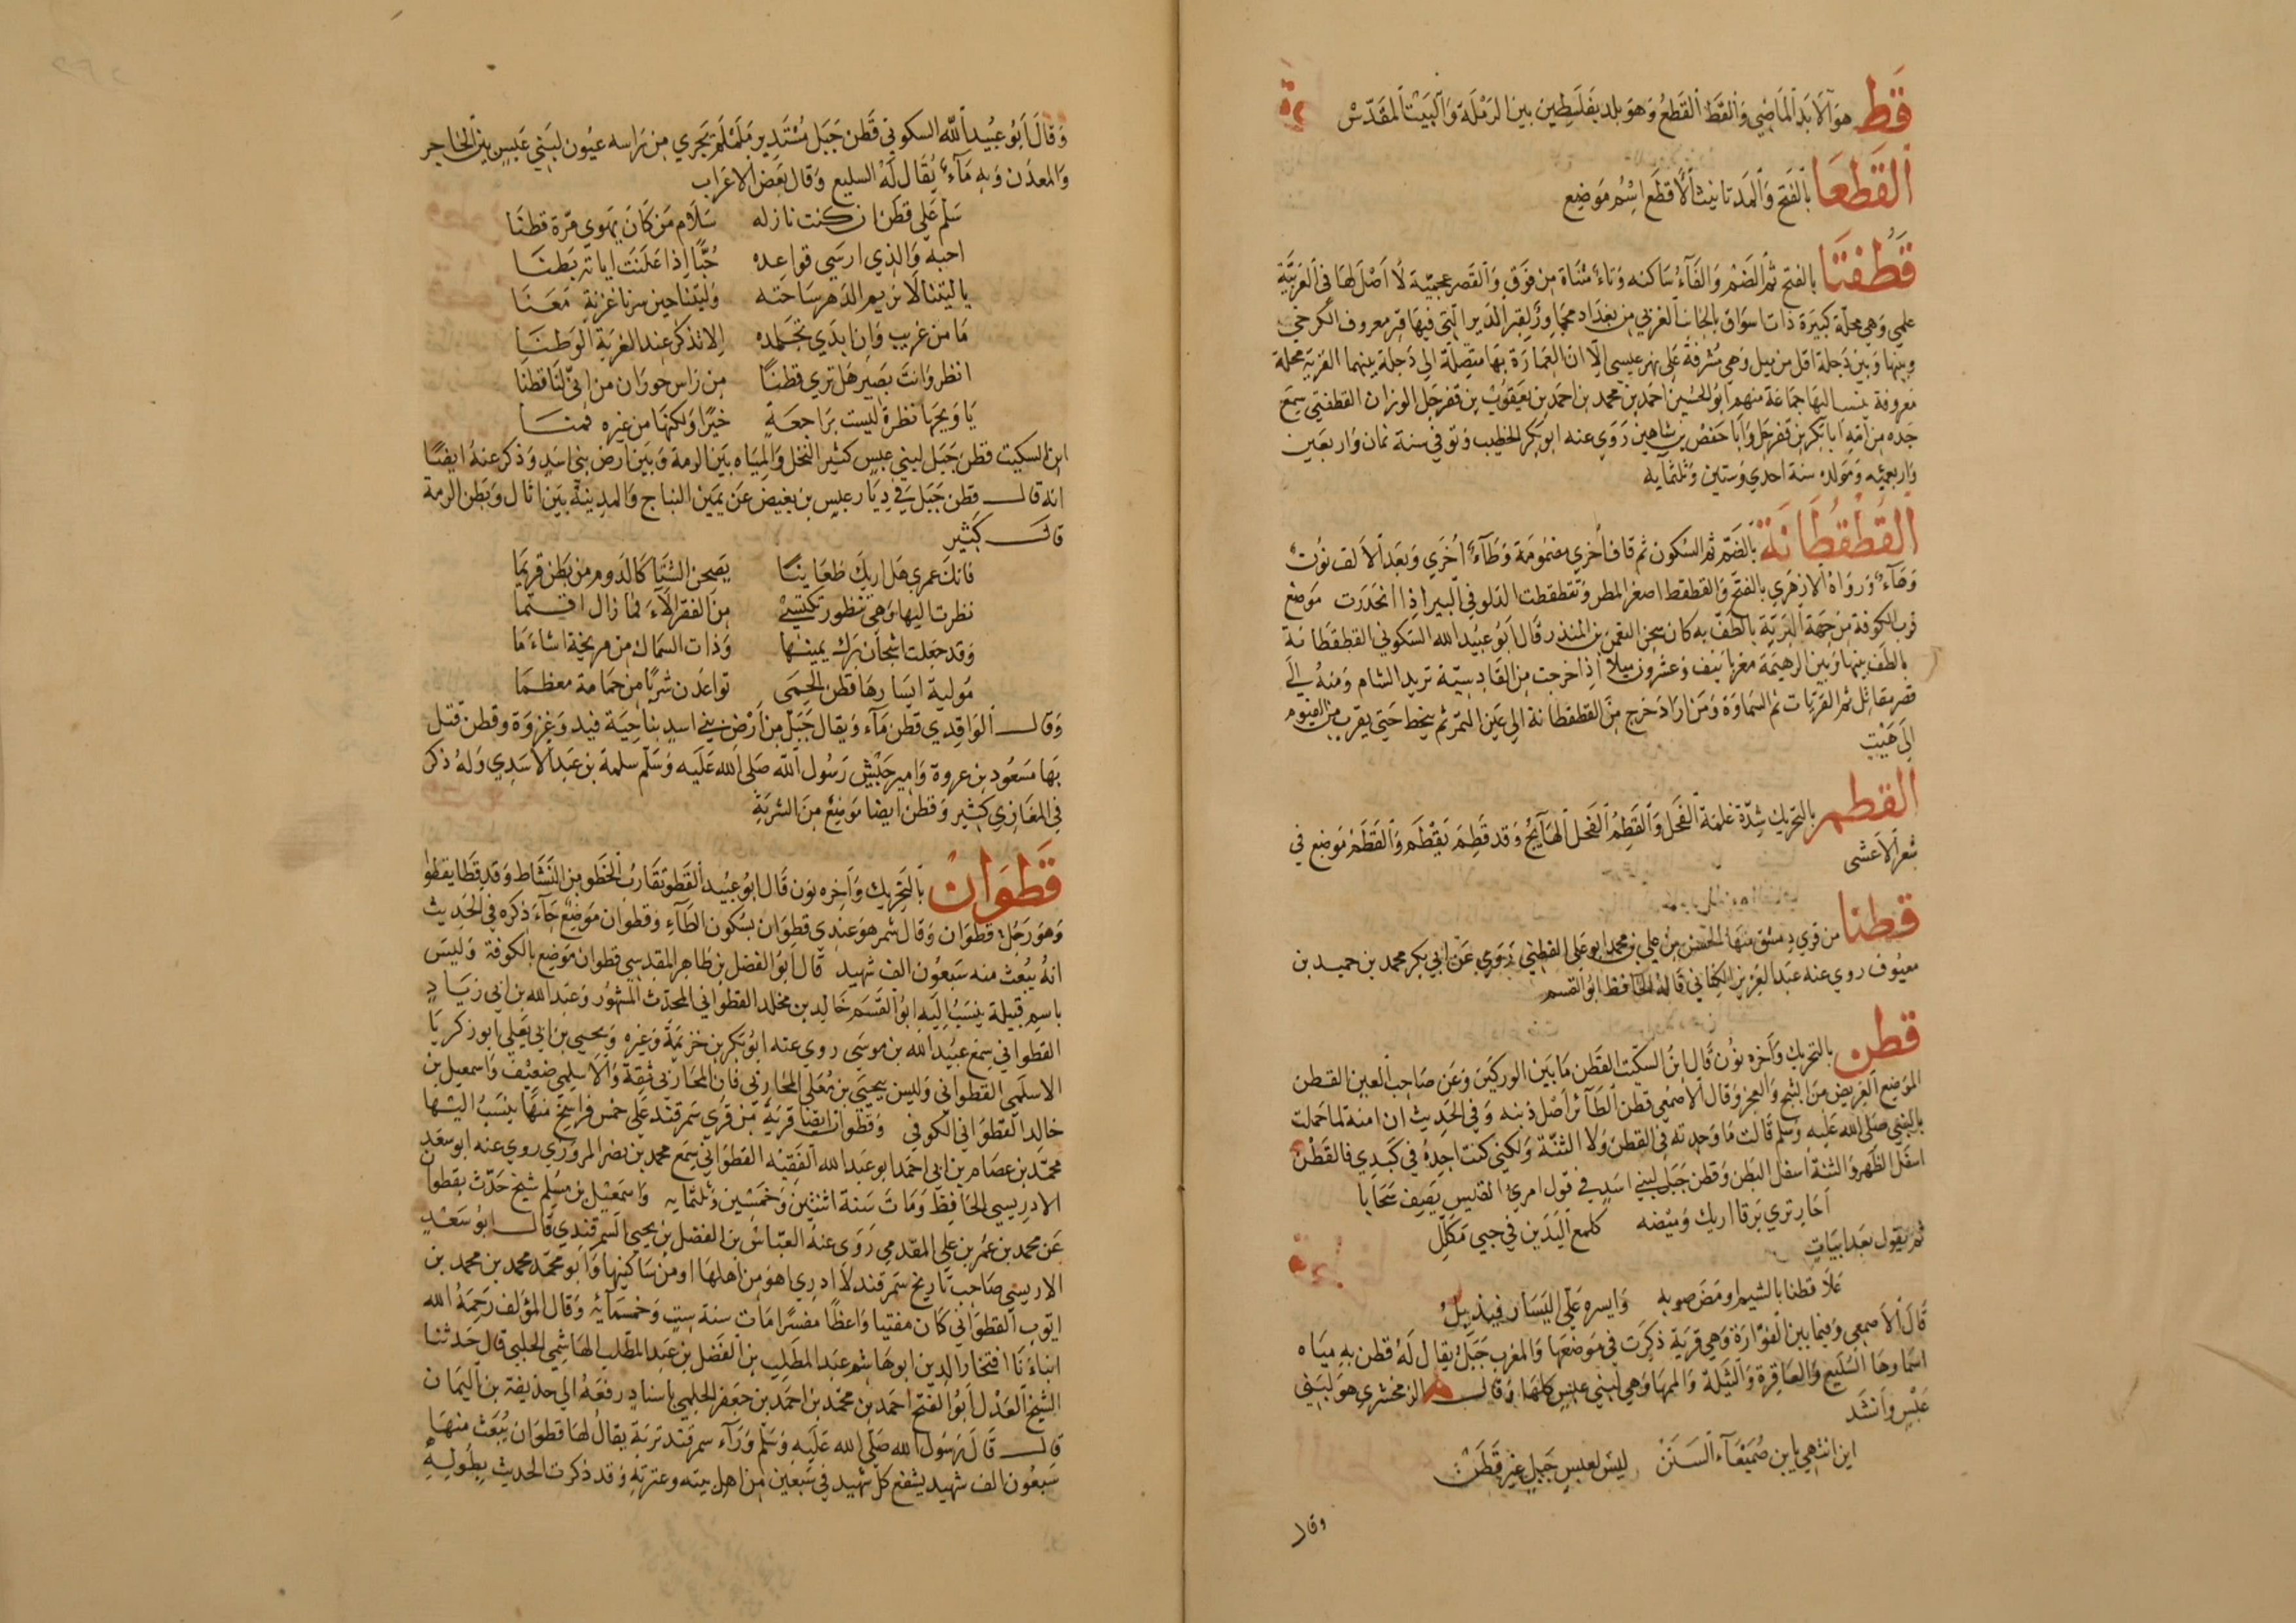 قط هو الابد الماضي والقط القطع وهو بلد بفلسطين بين الرملة والبيت المقدس
القطعا بالفتح والمد تانيث الاقطع اسم موضع
قطفتا بالفتح ثم الضم والفاء ساكنه وتاء مثناة من فوق والقصر عجميّة لا اصل لها في العربيّة
علمي وهي محلّة كبيرة ذات اسواق بالجانب الغربي من بغداد مجاورة لقبر الدير التي فيها قبر معروف الكرخي
وبينها وبين دجلة اقل من ميل وهي مشرفة على نهر عيسى الّا ان العمارة بها متصلة الي دجلة بينهما القرية محلة
معروفة ينسب اليها جماعة منهم ابو الحسين احمد بن محمد بن احمد بن يعقوب بن قفرجل الوزان القطفتي سمع
جده من امه ابا بكر بن قفرجل وابا حفص بن شاهين روي عنه ابو بكر الخطيب وتوفي سنة ثمان واربعين
واربعمئه ومولده سنة احدي وستين وثلثمايه
القطقطانة بالضم ثم السكون ثم قاف اخري مضمومة وطاء اخري وبعد الالف نون
وهاء ورواه الازهري بالفتح والقطقط اصغر المطر وتقطقطت الدلو في البير اذا انحدرت موضع
قرب الكوفة من جهة البرية بالطف به كان سجن النعمن بن المنذر قال ابو عبيد الله السكوني القطقطانة
بالطف بينها وبين الرهيمة مغربا نيف وعشرون ميلا اذا خرجت من القادسيّة تريد الشام ومنه الى
قصر مقاتل ثم القريات ثم السماوة ومن اراد خرج من القطقطانة الي عين التمر ثم ينحط حتى يقرب من الفيوم
الى هيت
القطم بالتحريك شدّة غلمة الفحل والقطم الفحل الهايج وقد قطم يقطم والقطم موضع في
شعر الاعشى
قطنا من قري دمشق منها الحسن بن علي بن محمد ابو علي القطني روي عن ابي بكر محمد بن حميد بن
معيوف روي عنه عبد العزيز الكتاني قاله الحافظ ابو القسم
قطن بالتحريك واخره نون قال ابن السكيت القطن ما بين الوركين وعن صاحب العين القطن
الموضع العريض من الثبج والعجز وقال الاصمعي قطن الطائر اصل ذنبه وفي الحديث ان امنة لما حملت
بالنبي صلى الله عليه وسلم قالت ما وجدته في القطن ولا الثنّة ولكني كنت اجده في كبدي فالقطن
اسفل الظهر والثنة اسفل البطن وقطن جبل لبني اسد في قول امرئ القيس يصف سحابا
احار تري برقا اريك وميضه كلمع اليدين في حبي مكلل
ثم يقول بعد ابيات
علا قطنا بالشيم ايمن صوبه وايسره علي اليسار فيذبل
قال الاصمعي وفيما بين الفوّارة وهي قرية ذكرت في موضعها والمغرب جبل يقال له قطن به مياه
اسماوها السليع والعاقرة والثيلة والمهما وهي لبني عبس كلها وقال الزمخشري هو لبني
عبس وانشد
اين انتهي يابن صميعاء السنن ليس لعبس جبل غير قطن
وقال
وقال ابو عبيد الله السكوني قطن جبل مستدير ململم يجري من راسه عيون لبني عبس بين الحاجر
والمعدن وبه ماء يقال له السليع وقال بعض الاعراب
سلم علي قطن ان كنت نازله سلام من كان يهوى مرة قطنا
احبه والذي ارسي قواعده حُبًّا اذا علنت اياته بطنا
يا ليتنا لا نريم الدهر ساحته وليتنا حين سرنا غربة معنا
ما من غريب وان ابدي تجلده الا تذكر عند الغربة الوطنا
انظر وانت بصير هل تري قطنًا من راس حوران من اتي لنا قطنا
يا ويحها نظرة ليست براجعة خيرًا ولكنها من غيره قمنا
ابن السكيت قطن جبل لبني عبس كثير النخل والمياه بين الرمة وبين ارض بني اسد وذكر عنه ايضًا
انه قال قطن جبل في ديار عبس بن بغيض عن يمين النباج والمدينة بين اثال وبطن الرمة
قال كثير
فانك عمري هل اريك ظعاينًا يصحن الشتا كالدوم من بطن تريما
نظرت اليها وهي تنظور تكتسي من الفقر الآء فما زال اقتما
وقد جعلت اشجان برك يمينها وذات السماك من مريخة اشاءما
مولية ايسارها قطن الحمى تواعدن شربًا من حمامة معظما
وقال الواقدي قطن ماء ويقال جبل من ارض بني اسد بناحية فيد وغزوة وقطن قتل
بها مسعود بن عروة وامير جيش رسول الله صلى الله عليه وسلم سلمة بن عبد الاسدي وله ذكر
في المغازي كثير وقطن ايضا موضع من الشربة
قطوان بالتحريك واخره نون قال ابو عبيد القطو تقارب الخطو من النشاط وقد قطا يقطوا
وهو رجل قطوان وقال شمر هو عندي قطوان بسكون الطاء وقطوان موضع جاء ذكره في الحديث
انه يبعث منه سبعون الف شهيد قال ابو الفضل بن طاهر المقدسي قطوان موضع بالكوفة وليس
باسم قبيلة ينسب اليه ابو القسم خالد بن مخلد القطواني المحدث المشهور وعبد الله بن ابي زياد
القطواني سمع عبيد الله بن موسى روي عنه ابو بكر بن خزيمة وغيره ويحيى بن ابي يعلي ابو زكريا
الاسلمي القطواني وليس بيحيى بن معلي المحاربي فان المحاربي ثقة والاسلمي ضعيف واسمعيل بن
خالد القطواني الكوفي وقطوان ايضا قرية من قرى سمرقند على خمس فراسخ منها ينسب اليها
محمد بن عصام بن ابي احمد ابو عبد الله الفقيه القطواني سمع محمد بن نصر المروزي روي عنه ابو سعد
الادريسي الحافظ ومات سنة اثنتين وخمسين وثلثمايه واسمعيل بن مسلم شيخ حدّث بقطوان
عن محمد بن عمر بن علي المقدمي روى عنه العباس بن الفضل بن يحيى السمرقندي قال ابو سعد
الادريسي صاحب تاريخ سمرقند لا ادري اهو من اهلها او من ساكنيها وابو محمد محمد بن محمد بن
ايوب القطواني كان مفتيا واعظًا مفسرًا مات سنة ست وخمسمائه وقال المؤلف رحمه الله
انباءنا افتخار الدين ابو هاشم عبد المطلب بن الفضل بن عبد المطّلب الهاشمي الحلبي قال حدثنا
الشيخ العدل ابو الفتح احمد بن محمد بن احمد بن جعفر الحلمي باسناد رفعه الي حذيفة بن اليمان
قال قال رسول الله صلى الله عليه وسلم وراء سمرقند تربة يقال لها قطوان يبعث منها
سبعون الف شهيد يشفع كل شهيد في سبعين من اهل بيته وعترته وقد ذكرت الحديث بطوله